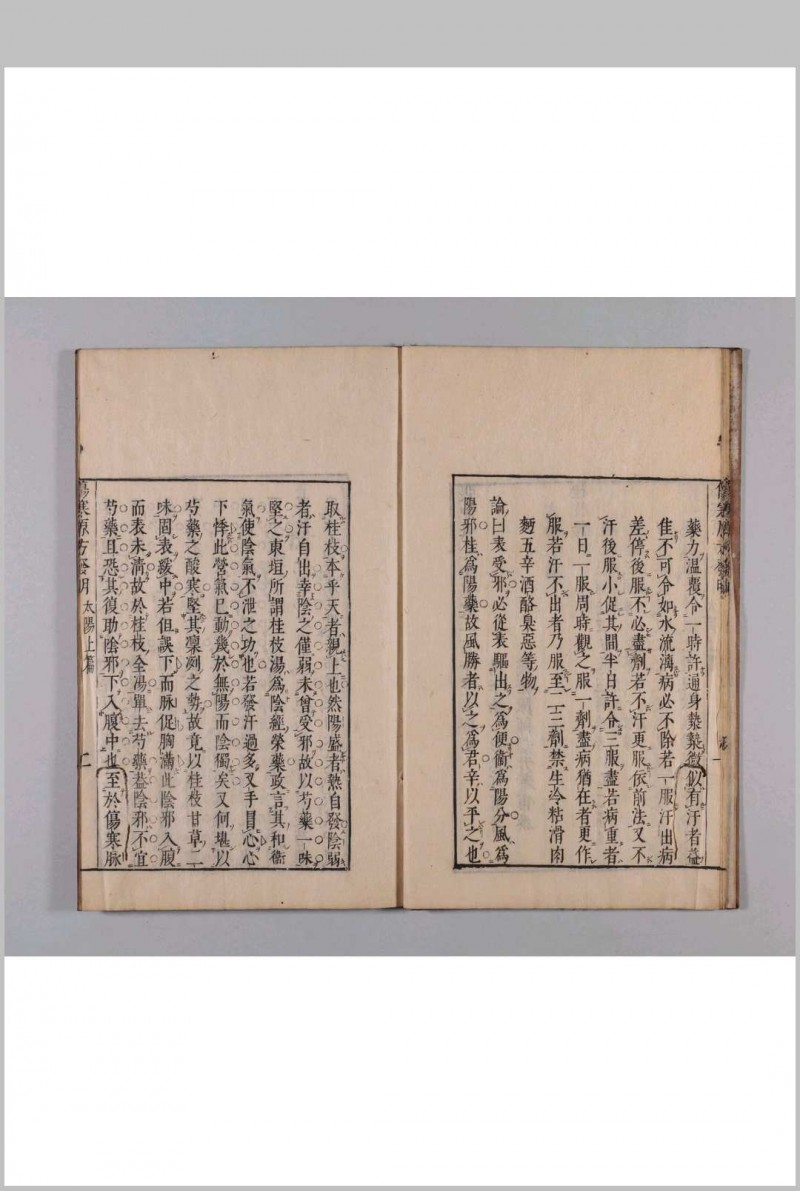 藥力溫覆令一時許遍身漐漐微似有汗者益
佳不可令如水流漓病必不除若一服汗出病
差停後服不必盡劑若不汗更服依前法又不
汗後服小促其間半日許令三服盡若病重者
一日一服周時觀之服一劑盡病猶在者更作
服若汗不出者乃服至二三劑禁生冷粘滑肉
麵五辛酒酪臭惡等物
論曰表受邪必從表驅出之爲便衞爲陽分風爲
陽邪桂爲陽藥故風勝者以之爲君辛以平之也
取桂枝本乎天者親上也然陽盛者熱自發陰弱
者汗自出幸陰之僅弱未曾受邪故以芍藥一味
堅之東垣所謂桂枝湯爲陰經榮藥政言其和衞
氣使陰氣不泄之功也若發汗過多叉手冒心心
下悸此營氣已動幾於無陽而陰獨矣又何堪以
芍藥之酸寒堅其凜冽之勢故竟以桂枝甘草二
味固表緩中若但誤下而脉促胸滿此陰邪入腹
而表未滴故於桂枝全湯單去芍藥葢陰邪不宜
芍藥且恐其復助陰邪下入腹中也至於傷寒脉
傷寒原方發明 太陽上篇 二